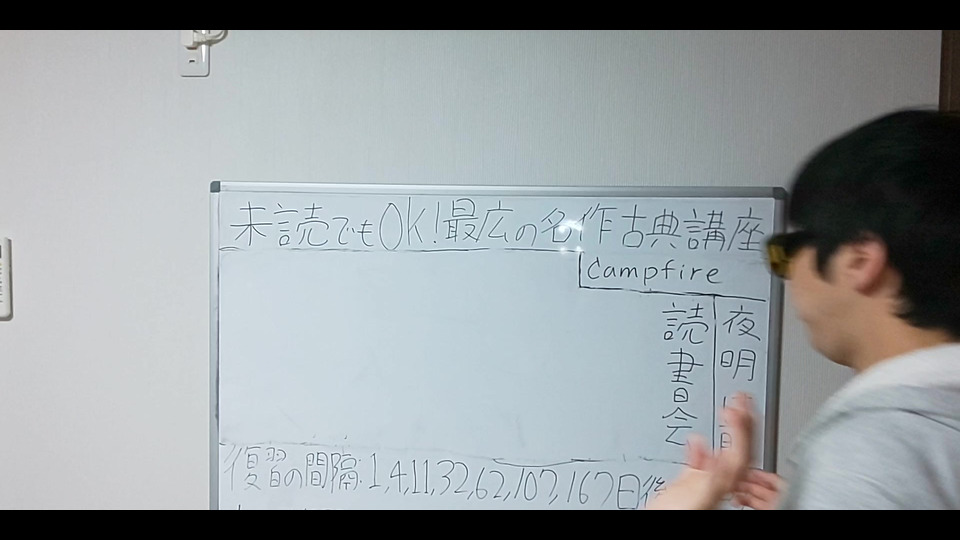 未読でもOK!最広の名作古典講座
Campfire
夜明け前
読書会
復習の間隔:1,4,11,32,62,107,167日後